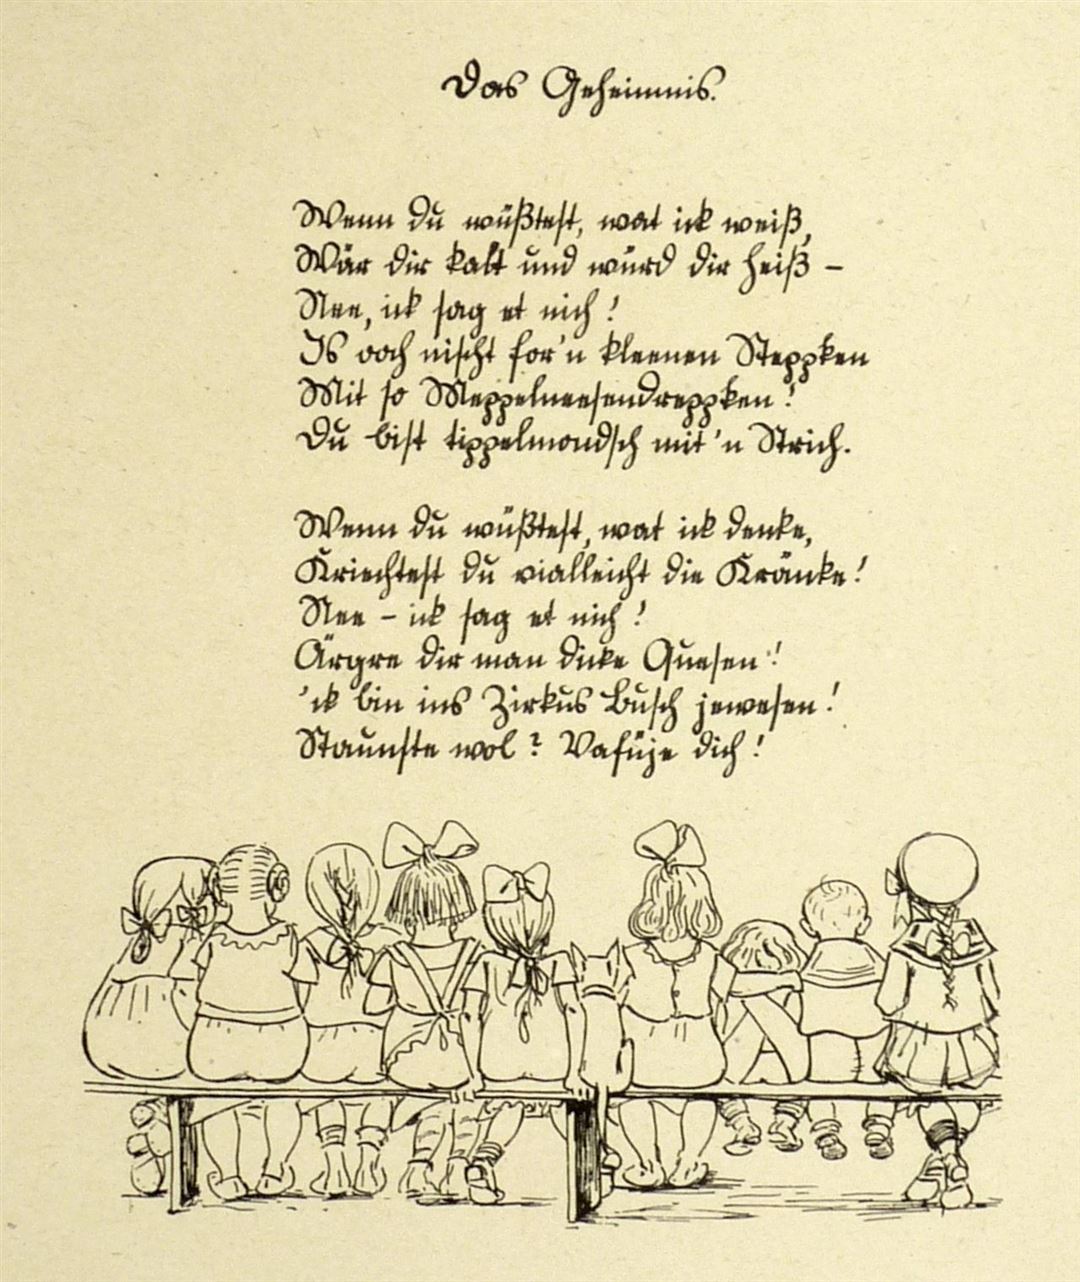 Das Geheimnis.
Wenn du wüßtest, wat ick weiß,
Wär dir kalt und würd dir heiß –
Nee, ick sag et nich!
Is ooch nischt for'n kleenen Steppken
Mit so Meppelneesendreppken!
Du bist tippelmondsch mit 'n Strich.
Wenn du wüßtest, wat ick denke,
Kriechtest du vialleicht die Kränke!
Nee – ick sag et nich!
Ärgre dir man dicke Quesen!
'ck bin ins Zirkus Busch jewesen!
Staunste wol? Vafüje dich!